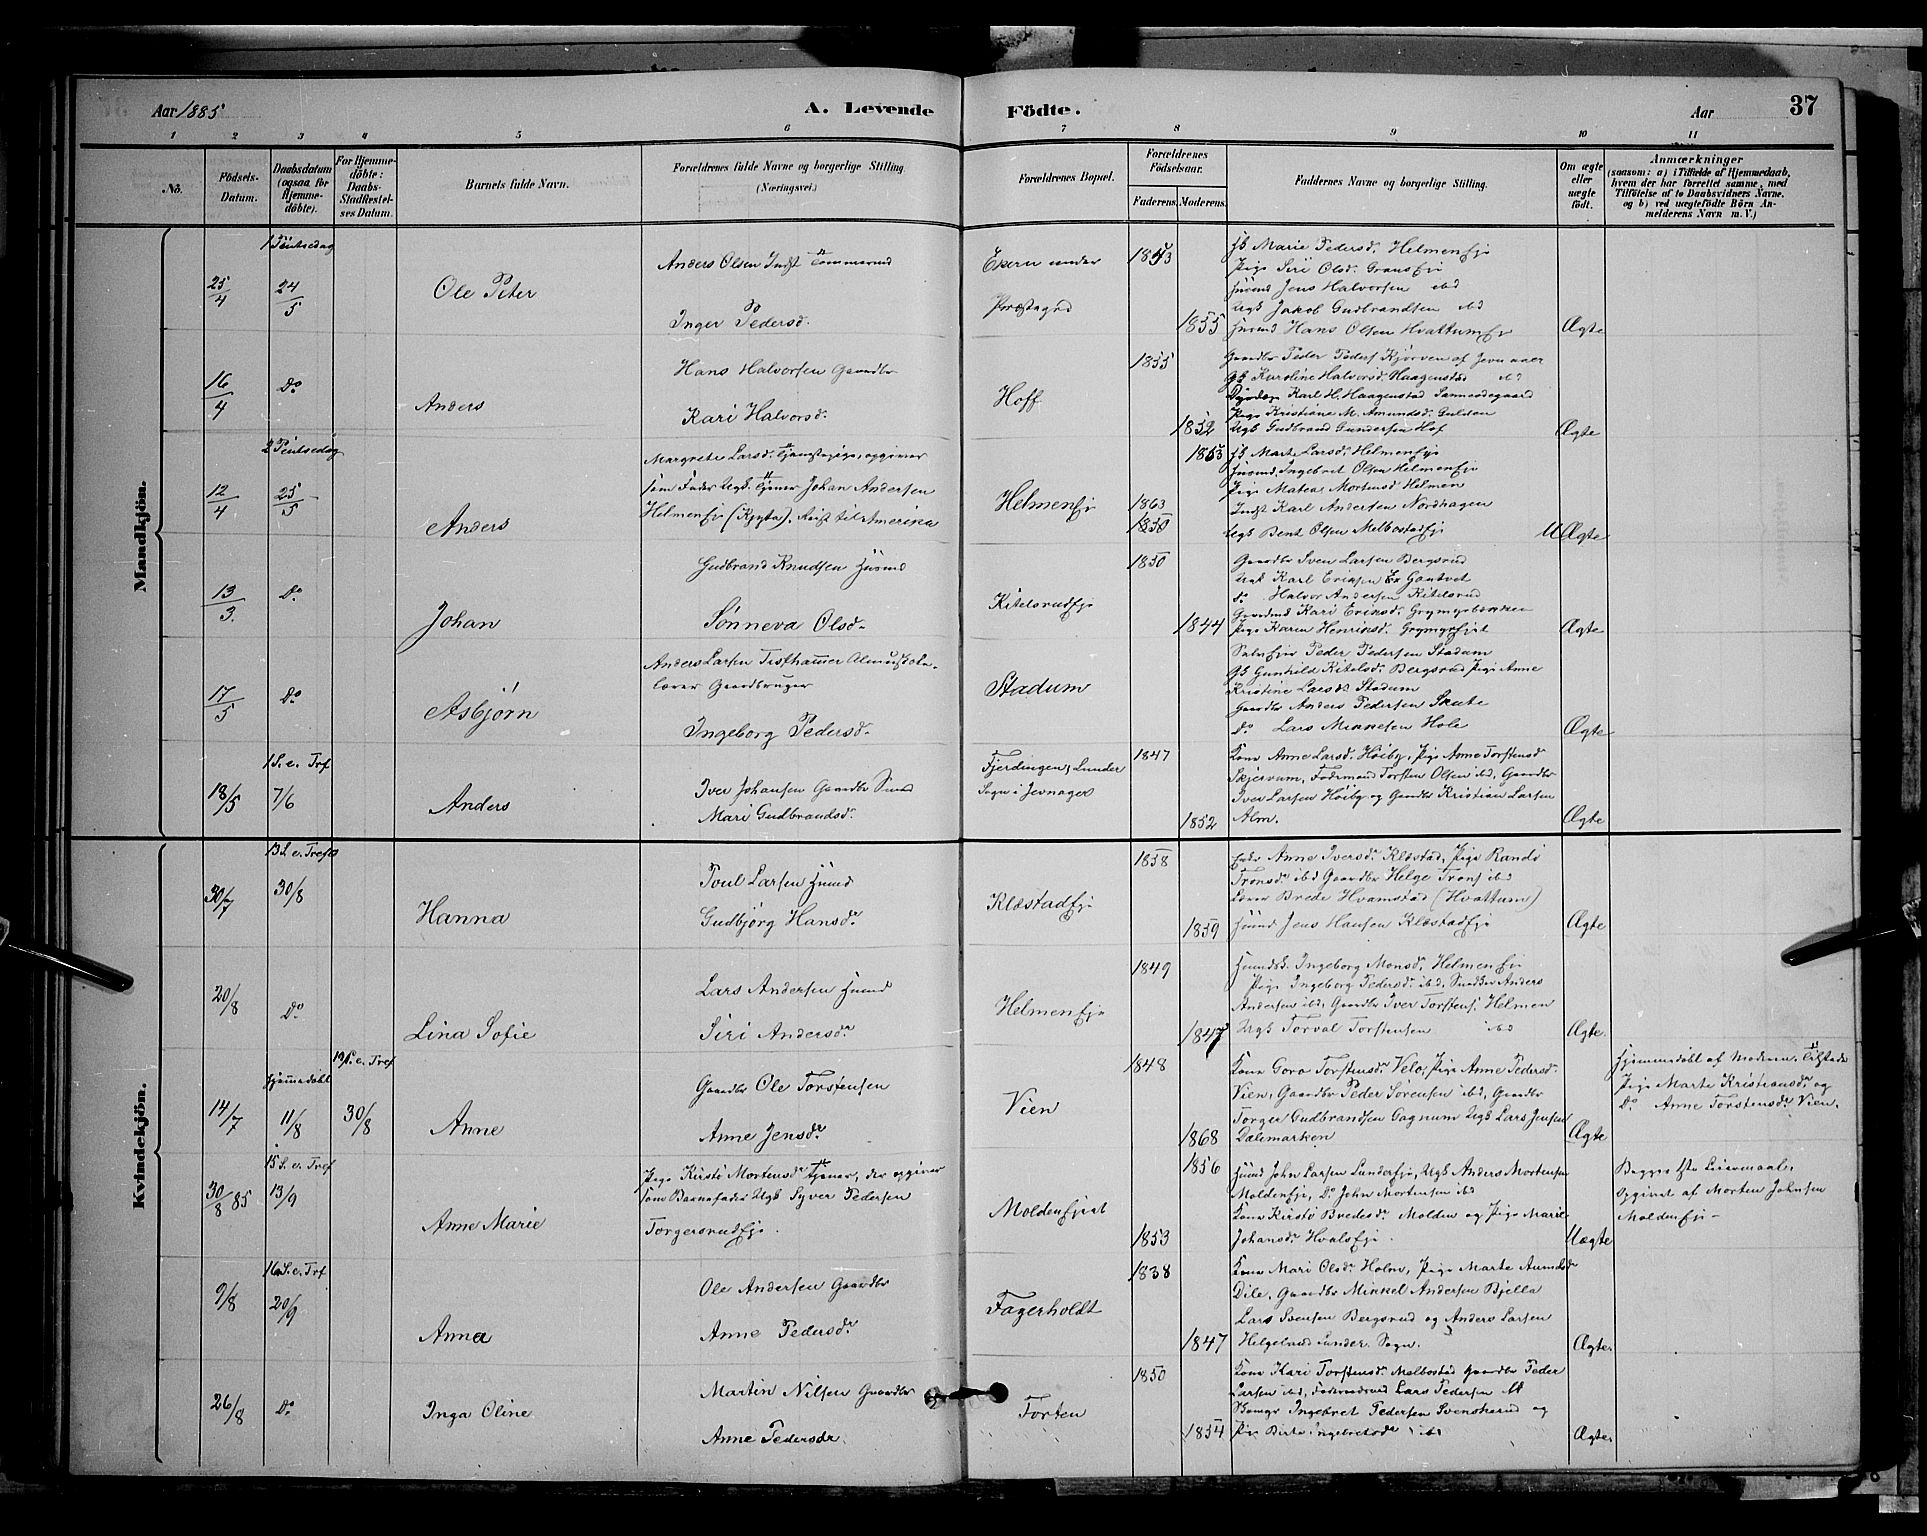 Aar 1885
A. Levende
Födte.
Aar
37
1 2 3 4 5 6 7 8 9 10 11
No.
Födsels-Datum.
Daabsdatum (ogsaa for Hjemme-döbte).
For Hjemme-döbte: Daabs-Stadfæstel-ses Datum.
Barnets fulde Navn.
Forældrenes fulde Navne og borgerlige Stilling (Næringsvei.)
Forældrenes Bopæl.
Forældrenes Födselsaar.
Faderens. Moderens.
Faddernes Navne og borgerlige Stilling.
Om ægte eller uægte födt.
Anmærkninger
(saasom: a) i Tilfælde af Hjemmedaab,
hvem der har forrettet samme, med
Tilföielse af to Daabsvidners Navne.
og b) ved uægtefödte Börn An-
melderens Navn m.V.)
Mandkjön.
1 Pintsedag
25/4 24/5
Ole Peter
Anders Olsen Indst Tommerud
Inger Pedersd.
Exern under
Præstegrd
1853
1855
Marie Pedersd. Helmenej
Pige Siri Olsd. Gransej
Husmd Jens Halvorsen ibd
Ugk Jakob Gudbrandsen ibd
Husmd Hans Olsen Hvattumej
Ægte
16/4 Do
Anders
Hans Halvorsen Gaardbr
Kari Halvorsd.
Hoff
1855
1852
Gaardbr Peder Peders Kjørven af Jevnaker
Gk Karoline Halvorsd. Haagenstad ibd
Karl H. Haagenstad Sannesogaard
Pige Kristiane M. Amundsd. Gulden
Ugk Gudbrand Gundersen Hof
Ægte
2 Pintsedag
12/4 25/5
Anders
Margrete Larsd. Tjenestepige, opgiver
som Fader Ugk. Tjener Johan Andersen
Helmenej (Kpsta). Reist til Amerika
Helmenej
1853
1863
1850
Mart. Larsd. Helmenej
Husmd. Ingebret Olsen Helmenej
Pige Matea Mortensd Helmen
Indst Karl Andersen Nordhagen
Ugk Bent Olsen Melbostadej
UÆgte
13/3. Do
Johan
Gudbrand Knudsen Husmd
Sønneva Olsd.
Kitelsrudej
1850
1844
Gaardbr Sven Larsen Bergsrud
Ugk Karl Eriksen Ex Gantvet
do Halvor Andersen Kitelsrud
Gaardmd Kari Eriksd. Grymyrbærkken
Pige Karen Henriksd. Grymyrejet
Ægte
17/5 Do
Asbjørn
Anders Larsen Tisthammer Almuskole-
lærer Gaardbruger
Ingeborg Pedersd.
Stadum
Selvejer Peder Pedersen Stadum
Gk Gunhild Kitelsd. Bergsrud Pige Anne
Kristine Larsd. Stadum
Gaardbr Anders Pedersen Skute
Do Lars Mikkelsen Hole
Ægte
1 S. e. Trf
18/5 7/6
Anders
Iver Johansen Gaardbr Sund
Mari Gudbrandsd.
Fjerdingen, Lunder
Sogn i Jevnager
1847
1852
Kone Anne Larsd. Høiby, Pige Anne Torstensd
Skjervum, Foermand Torsten Olsen ibd, Gaardbr
Iver Larsen Høiby og Gaardbr Kristian Larsen
Alm.
Ægte
Kvindekjön.
13 S. e. Tref
30/7 30/8
Hanna
Poul Larsen Husmd
Gudbjörg Hansdr
Klæstadej
1858
1859
Anne Iversdr Klæstad, Pige Randi
Tronsdr ibd Gaardbr Helge Trons ibd
Lærer Brede Hvamstad (Hvattum)
Husmd Jens Hansen Klæstadej
Ægte
20/8 Do
Lina Sofie
Lars Andersen Husmd
Siri Andersdr
Helmenej
1849
1847
Husmdsk. Ingeborg Monsd. Helmenej
Pige Ingeborg Pedersdr ibd, Anders
Andersen ibd, Gaardbr Iver Torstens. Helmen
Ugk Torval Torstensen ibd
Ægte.
Hjemmedøbt 19 S. e. Tref
14/7 11/8 30/8
Anne
Gaardbr Ole Torstensen
Anne Jensdr
Vien
1848
1868
Kone Goro Torstensdr Velo, Pige Anne Pedersd.
Vien, Gaardbr Peder Sørensen ibd, Gaardbr
Torger Gudbrandsen Gagnum Ugk Lars Jensen
Dælemarken
Ægte
Hjemmedøbt af Moderen. Tilstede
Pige Marte Kristiansdr og
Do. Anne Torstensdr Vien.
15 S. e. Tref
30/8 85 13/9
Anne Marie
Pige Kirsti Mortensdr Tjener, der opgiver
som Barnefader Ugk Syver Pedersen
Torgersrudej.
Moldenejet
1856
1853
Husmd John Larsen Lunderej, Ugk Anders Mortensen
Moldenej, Do John Mortensen ibd
Kone Kirsti Bredesdr Molden og Pige Marie
Johansdr Hvalsej.
Uægte
Begges 1ste Leiermaal.
Opgivet af Morten Johnsen
Moldenej-
16 S. e. Trf
9/8 20/9
Anna
Ole Andersen Gaardbr
Anne Pedersdr
Fagerholdt
1838
1847
Kone Mari Olsdr Holm, Pige Marte Aamdsdr
Dile, Gaardbr Mikkel Andersen Bjella
Lars Svensen Bergsrud og Anders Larsen
Helgeland Lunder Sogn.
Ægte.
26/8 Do
Inga Oline
Martin Nilsen Gaardbr
Anne Pedersdr.
Torten
1850
1854
Kone Kari Torstensdr. Melbostad Gaardbr Peder
Larsen ibd, Lars Pedersen
Ingebret Pedersen Svenskerud og
Pige Birte Ingebretsdr ibd
Ægte.